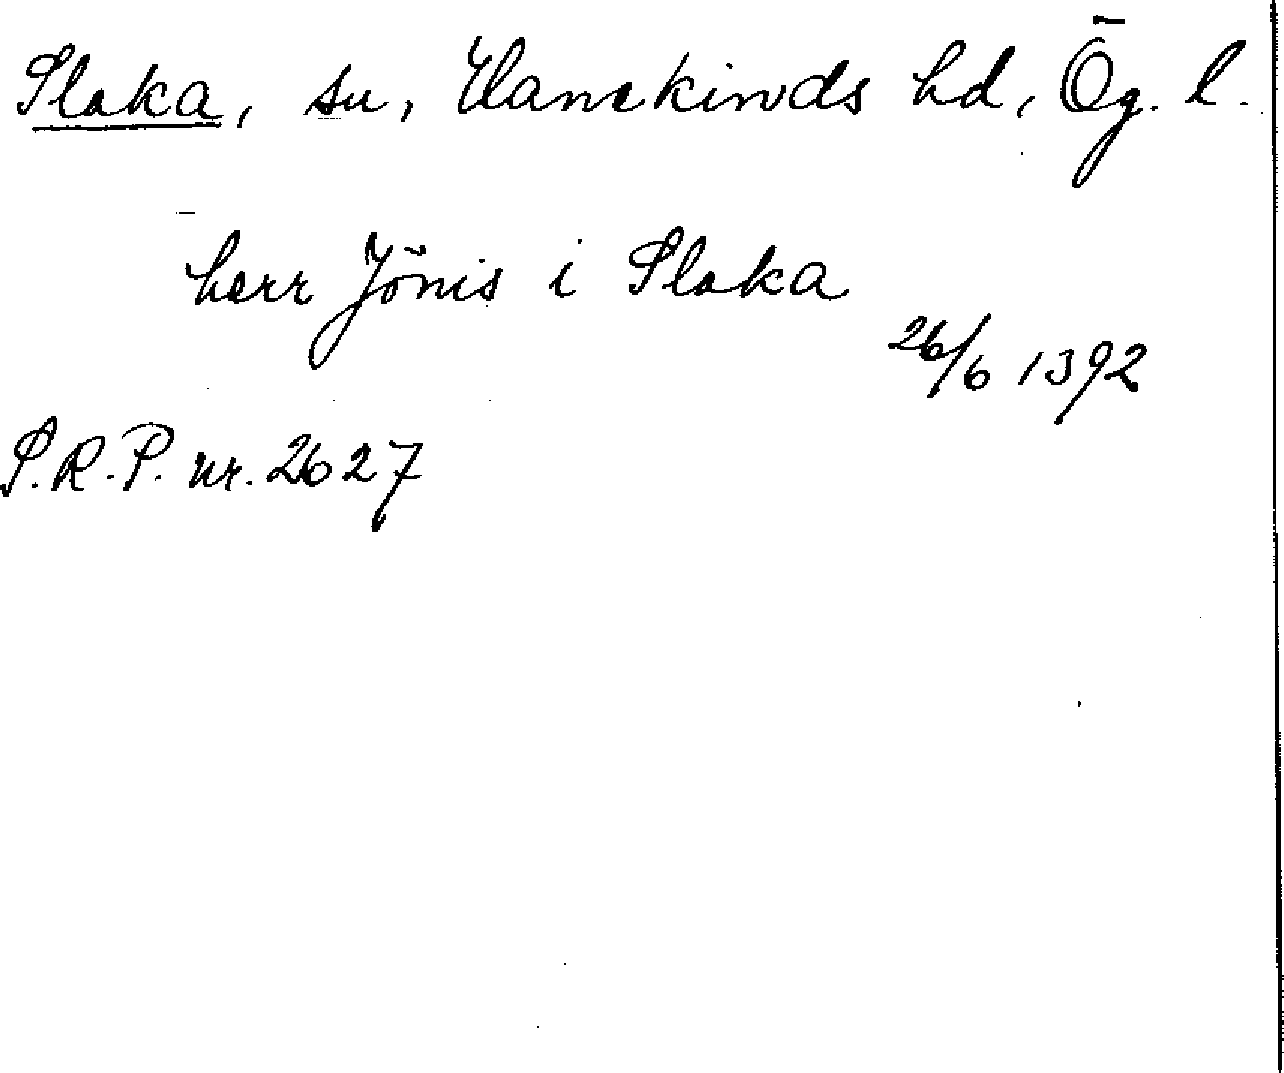 Slaka, su, Hanekinds hd, Ög. l.
herr Jönis i Slaka
26/6 1392
S.R.P. nr. 2627